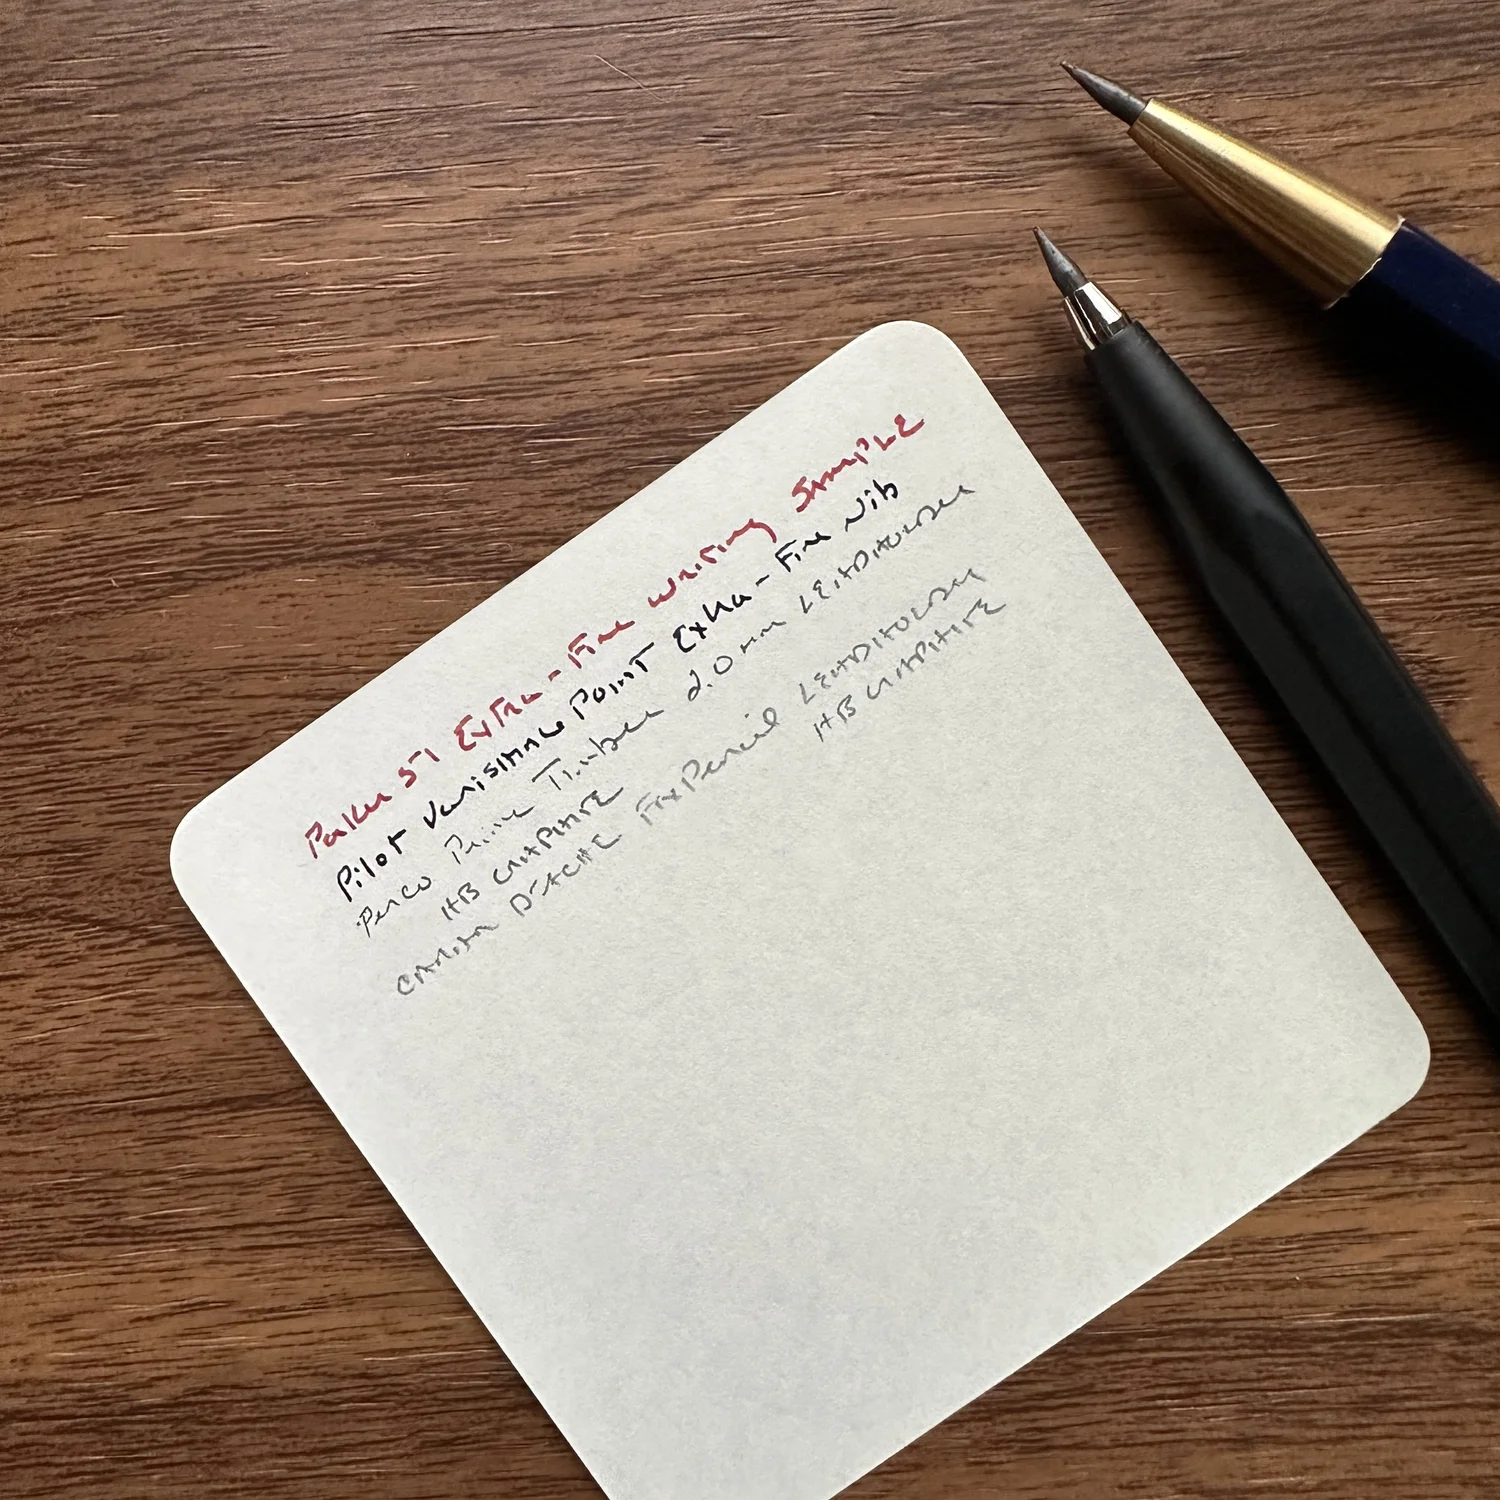 Parker 51 Extra-Fine Writing Sample
Pilot Vanishing Point Extra-Fine Nib
Penco Prime Timber 2.0mm LEADHOLDER
HB GRAPHITE
CARAN D'ACHE FixPencil LEADHOLDER
HB GRAPHITE